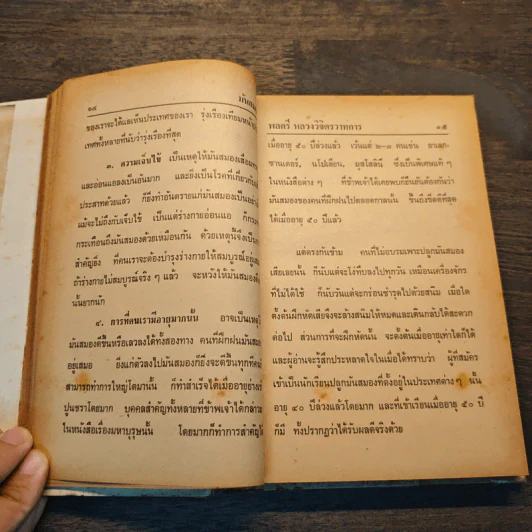 ๑๔
มันสมอง
ของเราจะได้แลเห็นประเทศของเรา รุ่งเรืองเทียมหน้า
ประเทศทั้งหลายที่นับว่ารุ่งเรืองที่สุด
๓. ความเจ็บไข้ เป็นเหตุให้มันสมองเสื่อม
และอ่อนแอลงเป็นอันมาก และยิ่งเป็นโรคที่เกี่ยว
ประสาทด้วยแล้ว ก็ยิ่งทำอันตรายแก่มันสมองเป็นอย่าง
แม้จะไม่ถึงกับเจ็บไข้ เป็นแต่ร่างกายอ่อนแอ ก็
กระเทือนถึงมันสมองด้วยเหมือนกัน ด้วยเหตุนี้จึงเป็น
สำคัญยิ่ง ที่คนเราจะต้องบำรุงร่างกายให้สมบูรณ์
ถ้าร่างกายไม่สมบูรณ์จริง ๆ แล้ว จะหวังให้มันสมอง
นั้นยากนัก
๔. การที่คนเรามีอายุมากนั้น อาจเป็นเหตุ
มันสมองดีขึ้นหรือเลวลงได้ทั้งสองทาง คนที่ฝึกฝนมันสมอง
อยู่เสมอ ยิ่งแก่ตัวลงไปมันสมองก็ยิ่งจะดีขึ้นทุกที
สามารถทำการใหญ่โตมานั้น ก็ทำสำเร็จได้เมื่ออายุย่าง
ปูนชราโดยมาก บุคคลสำคัญทั้งหลายที่ข้าพเจ้าได้กล่าว
ในหนังสือเรื่องมหาบุรุษนั้น โดยมากก็ทำการสำคัญ
พลตรี หลวงวิจิตรวาทการ ๑๕
เมื่ออายุ ๕๐ ปีล่วงแล้ว เว้นแต่ ๒-๓ คนเช่น อาเลก-
ซานเดอร์, นโปเลียน, มุสโสลินี ซึ่งเป็นพิเศษแท้ ๆ
ในหนังสือต่าง ๆ ที่ข้าพเจ้าได้เคยพบก็ยืนยันต้องกันว่า
มันสมองของคนที่ฝึกฝนไปตลอดกาลนั้น ขึ้นถึงขีดดีที่สุด
ได้เมื่ออายุ ๕๐ ปีแล้ว
แต่ตรงกันข้าม คนที่ไม่อบรมเพาะปลูกมันสมอง
เสียเลยนั้น ก็นับแต่จะโง่ทึบลงไปทุกวัน เหมือนเครื่องจักร
ที่ไม่ได้ใช้ ก็นับวันแต่จะกร่อนชำรุดไปด้วยสนิม เมื่อใด
ตั้งต้นฝึกหัดเสียจึงจะล้างสนิมให้หมดและเดินกลับได้สะดวก
ต่อไป ส่วนการที่จะฝึกหัดนั้น จะตั้งต้นเมื่ออายุเท่าใดก็ได้
และผู้อ่านจะรู้สึกประหลาดใจในเมื่อได้ทราบว่า ผู้ที่สมัคร
เข้าเป็นนักเรียนปลูกมันสมองที่ตั้งอยู่ในประเทศต่าง ๆ นั้น
อายุ ๔๐ ปีล่วงแล้วโดยมาก และที่เข้าเรียนเมื่ออายุ ๕๐ ปี
ก็มี ทั้งปรากฏว่าได้รับผลดีจริงด้วย